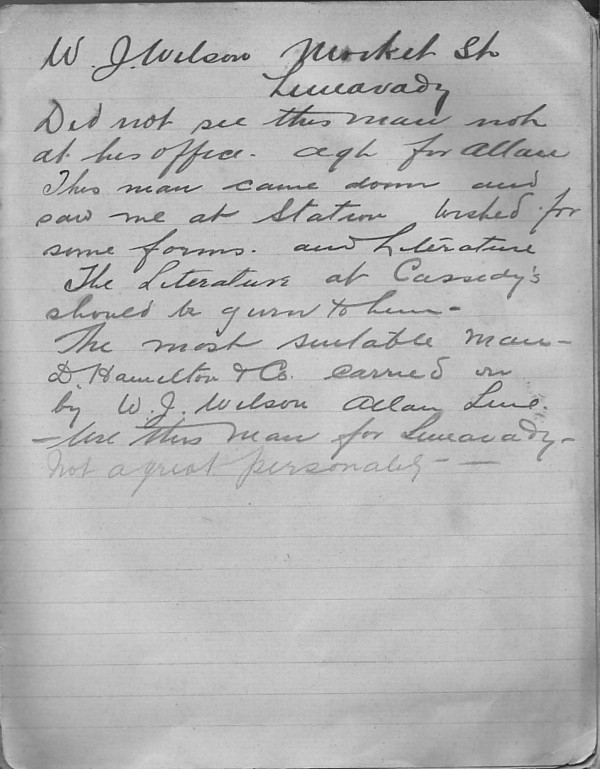 W. J. Wilson Market St
Limavady
Did not see this man not
at his office. agt for Allan
This man came down and
saw me at Station wished for
some forms. and Literature
The Literature at Cassedy's
should be given to him -
The most suitable man -
D. Hamilton & Co. carried on
by W. J. Wilson Allan Line.
- Use this man for Limavady -
Not a great personality - —